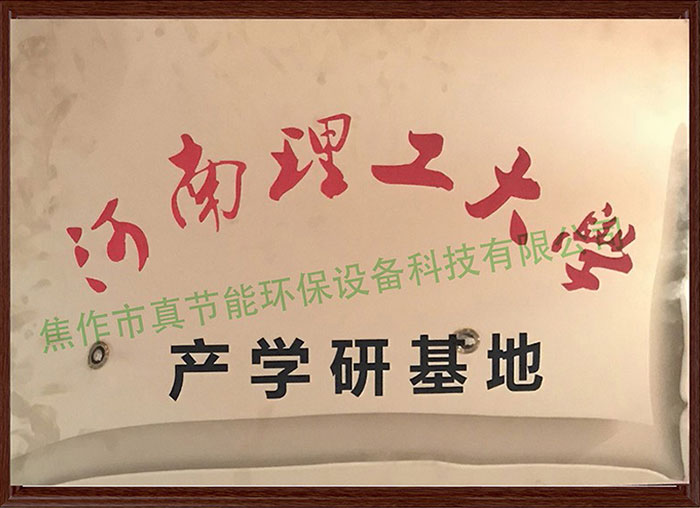 河南理工大学
焦作市真节能环保设备科技有限公司
产学研基地